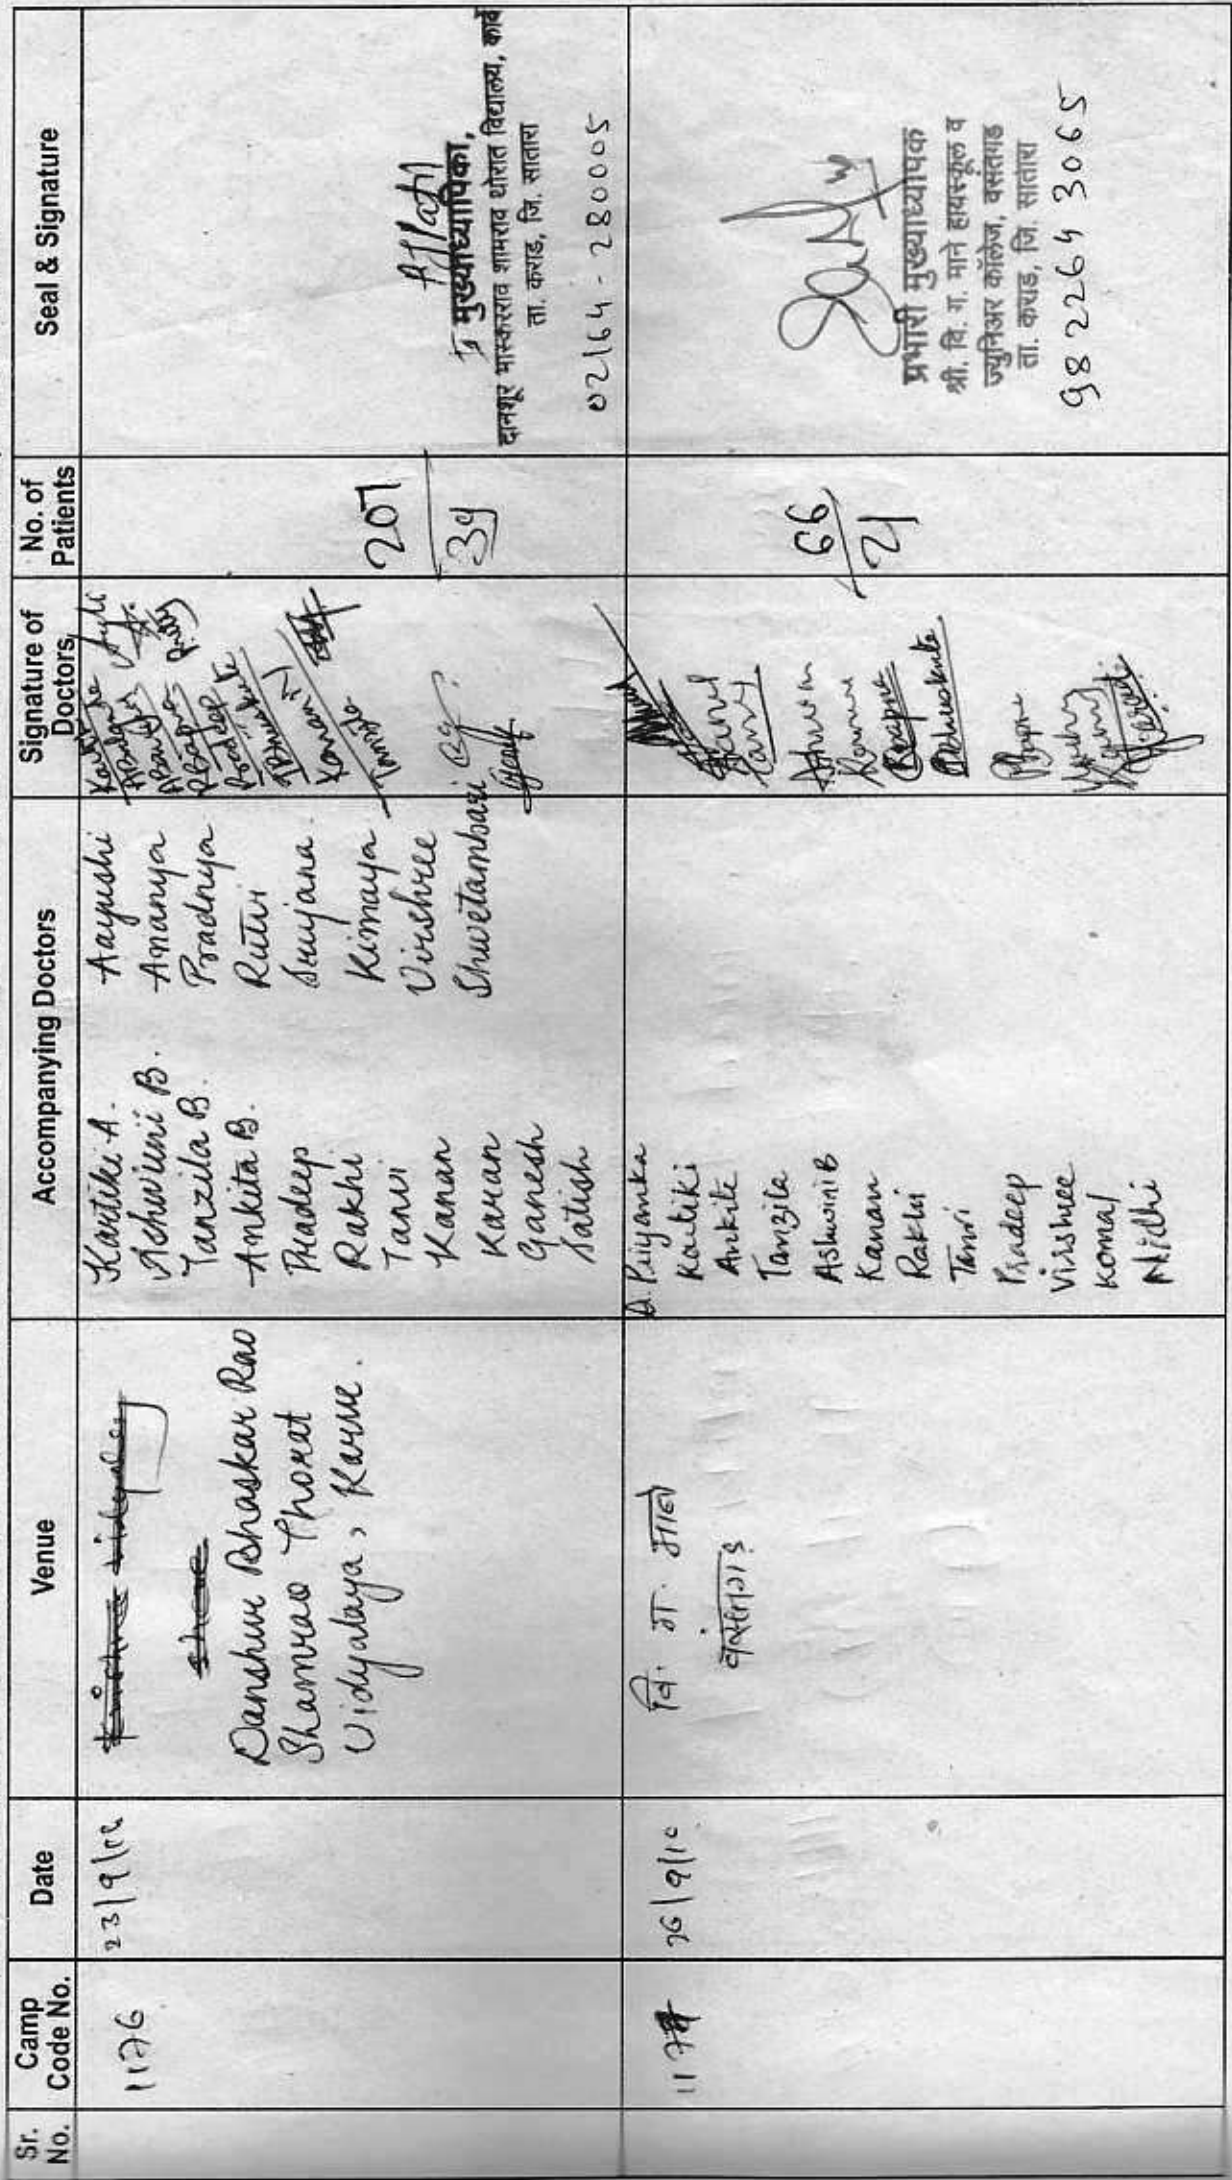 Sr. No.
Camp Code No.
Date
Venue
Accompanying Doctors
Signature of Doctors
No. of Patients
Seal & Signature
1176
Danshur Bhaskar Rao
Shamrao Thorat
Vidyalaya, Karve.
Kartiki A.
Ashwini B.
Tanzila B.
Ankita B.
Pradeep
Rakhi
Tanvi
Kanan
Karan
Ganesh
Satish
Aayushi
Ananya
Pradnya
Rutvi
Srujana.
Kimaya
Virshree
Shwetambari
Pradeep
207
39
मुख्याध्यापिका,
दानशूर भास्करराव शामराव थोरात विद्यालय, कार्वे
ता. कराड, जि. सातारा
02164 - 280005
26/9/
वि. ग. माने
वसंतगड
Priyanka
Kartiki
Ankita
Tanzila
Ashwini B
Kanan
Rakhi
Tanvi
Pradeep
Virshree
Komal
Nidhi
66
21
प्रभारी मुख्याध्यापक
श्री. वि. ग. माने हायस्कूल व
ज्युनिअर कॉलेज, वसंतगड
ता. कराड, जि. सातारा
98 2264 3065